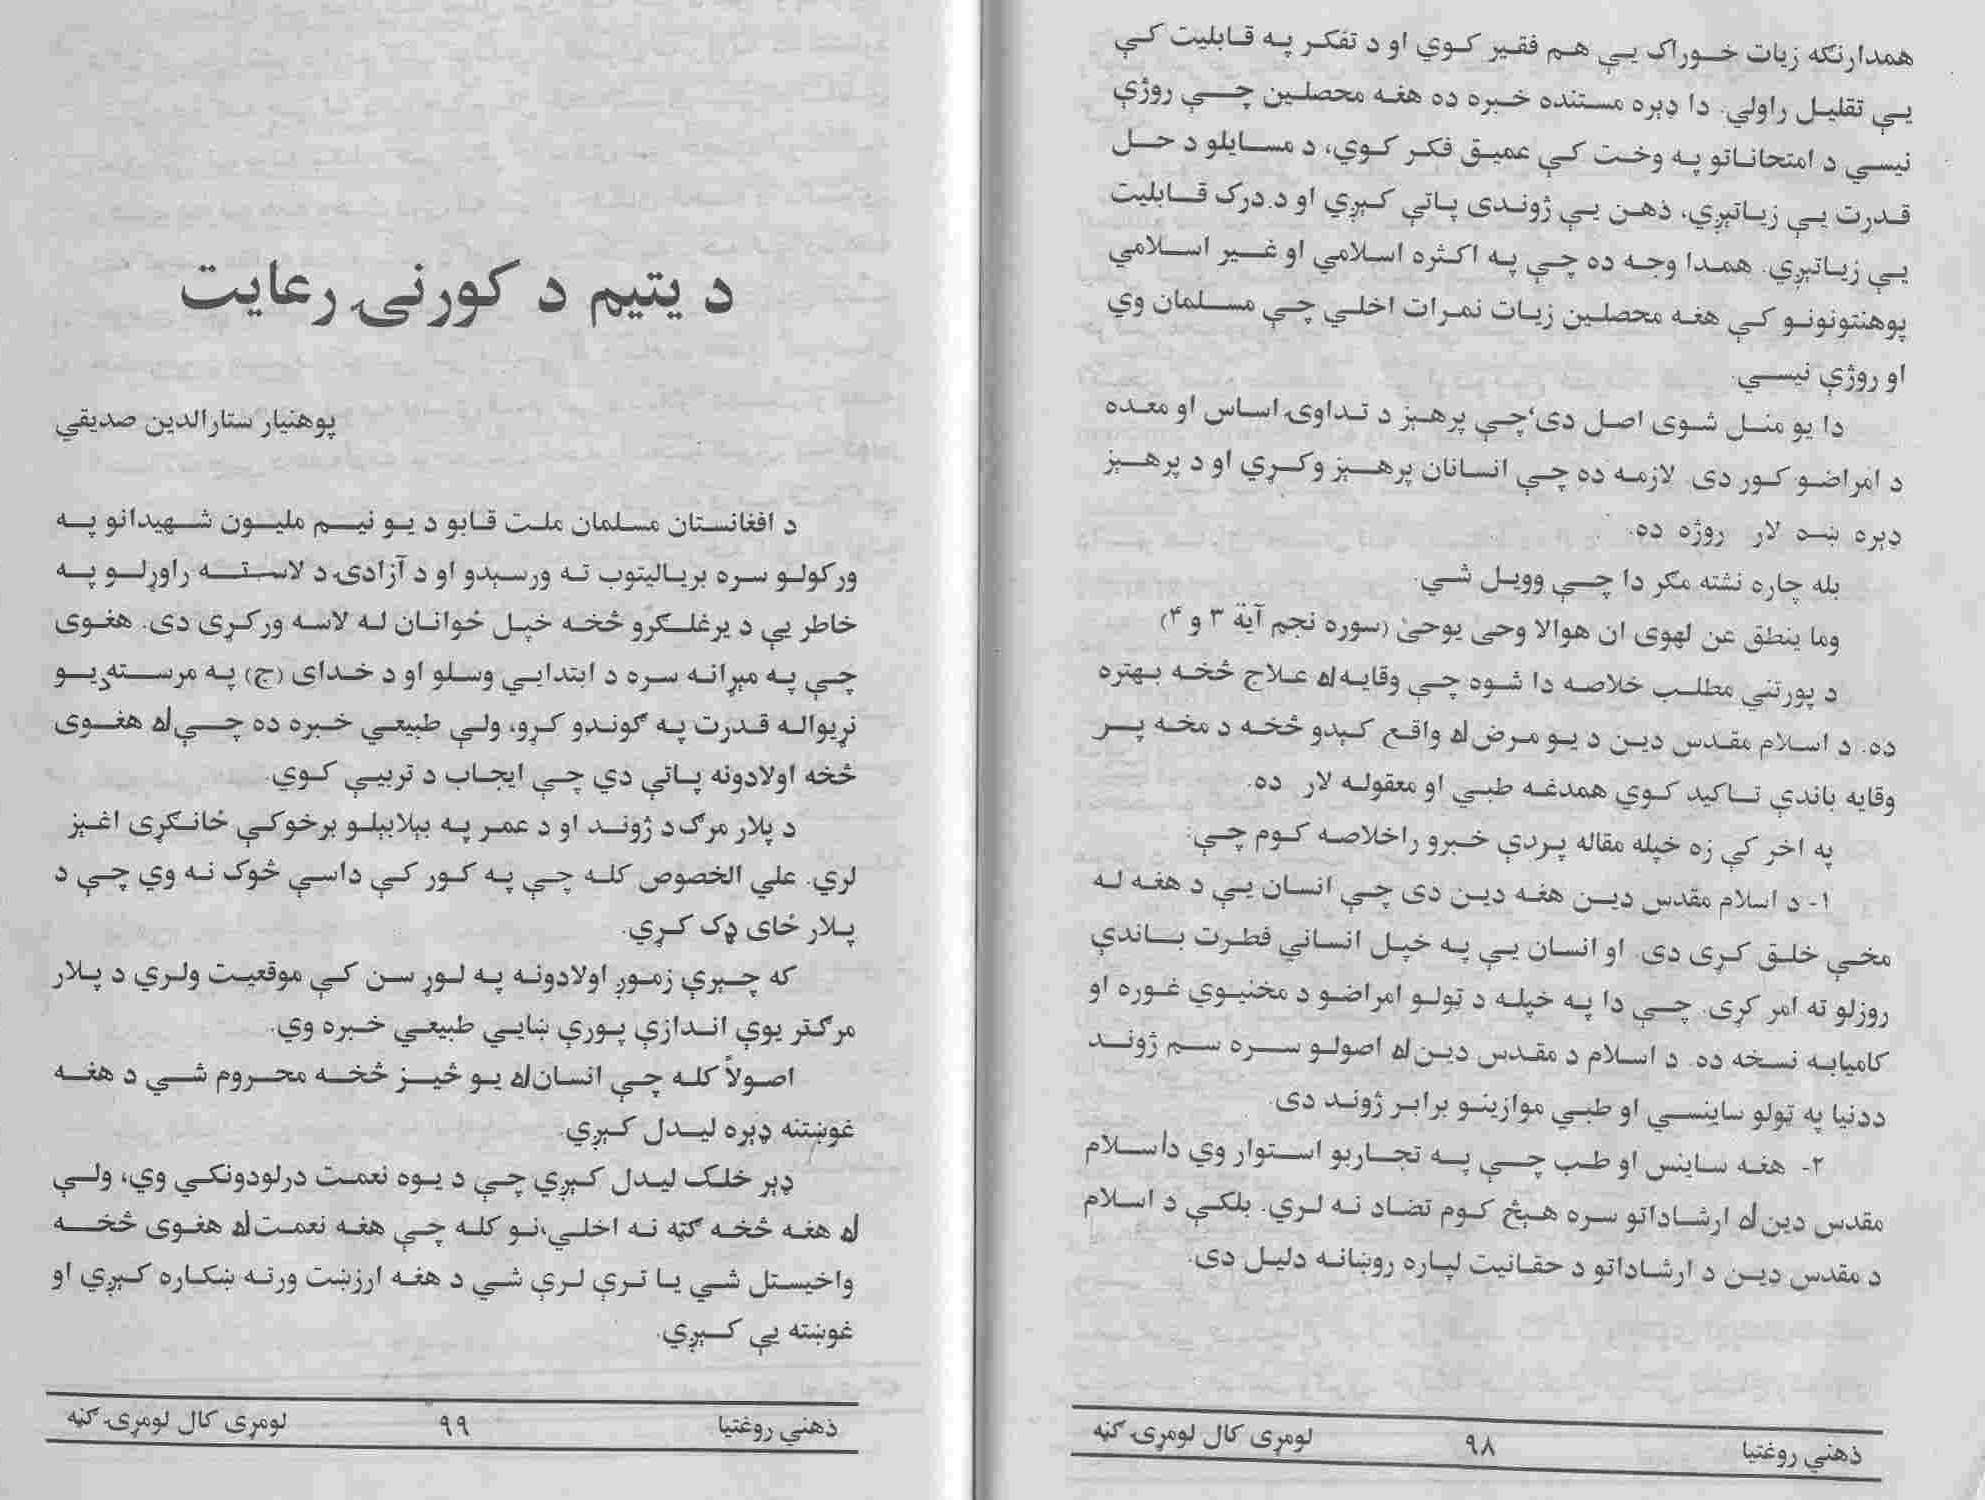 همدارنګه زیات خوراک یې هم فقیر کوي او د تفکر په قابلیت کې
یې تقلیل راولي. دا ډېره مستنده خبره ده هغه محصلین چې روژې
نیسي د امتحاناتو په وخت کې عمیق فکر کوي، د مسایلو د حل
قدرت یې زیاتېږي، ذهن یې ژوندی پاتې کېږي او د درک قابلیت
یې زیاتېږي. همدا وجه ده چې په اکثره اسلامي او غیر اسلامي
پوهنتونونو کې هغه محصلین زیات نمرات اخلي چې مسلمان وي
او روژې نیسي.
دا یو منل شوی اصل دی،چې پرهېز د تداوۍ اساس او معده
د امراضو کور دی لازمه ده چې انسانان پرهېز وکړي او د پرهېز
ډېره ښه لار روژه ده.
بله چاره نشته مګر دا چې وویل شي.
وما ینطق عن لهوی ان هوالا وحی یوحیٰ (سوره نجم آیة ۳ و ۴)
د پورتنې مطلب خلاصه دا شوه چې وقایه له علاج څخه بهتره
ده. د اسلام مقدس دین د یو مرض له واقع کېدو څخه د مخه پر
وقایه باندې تاکید کوي همدغه طبي او معقوله لار ده.
په اخر کې زه خپله مقاله پردې خبرو راخلاصه کوم چې:
۱- د اسلام مقدس دین هغه دین دی چې انسان یې د هغه له
مخې خلق کړی دی. او انسان یې په خپل انساني فطرت باندې
روزلو ته امر کړی. چې دا په خپله د ټولو امراضو د مخنیوي غوره او
کامیابه نسخه ده. د اسلام د مقدس دین له اصولو سره سم ژوند
ددنیا په ټولو ساینسي او طبي موازینو برابر ژوند دی.
۲- هغه ساینس او طب چې په تجاربو استوار وي داسلام
مقدس دین له ارشاداتو سره هېڅ کوم تضاد نه لري. بلکې د اسلام
د مقدس دین د ارشاداتو د حقانیت لپاره روښانه دلیل دی.
ذهني روغتیا ۹۸ لومړی کال لومړۍ ګڼه
د یتیم د کورنۍ رعایت
پوهنیار ستارالدین صدیقي
د افغانستان مسلمان ملت قابو د یو نیم ملیون شهیدانو په
ورکولو سره بریالیتوب ته ورسېدو او د آزادۍ د لاسته راوړلو په
خاطر یې د یرغلګرو څخه خپل ځوانان له لاسه ورکړی دی. هغوی
چې په مېړانه سره د ابتدایي وسلو او د خدای (ج) په مرسته یو
نړیواله قدرت په ګوندو کړو، ولې طبیعي خبره ده چې له هغوی
څخه اولادونه پاتې دي چې ایجاب د تربیې کوي.
د پلار مرګ د ژوند او د عمر په بېلابېلو برخوکې ځانګړی اغېز
لري. علي الخصوص کله چې په کور کې داسې څوک نه وي چې د
پلار ځای ډک کړي.
که چېرې زموږ اولادونه په لوړ سن کې موقعیت ولري د پلار
مرګتر یوې اندازې پورې ښایي طبیعي خبره وي.
اصولاً کله چې انسان له یو څیز څخه محروم شي د هغه
غوښتنه ډېره لیدل کېږي.
ډېر خلک لیدل کېږي چې د یوه نعمت درلودونکي وي، ولې
له هغه څخه ګټه نه اخلي،نو کله چې هغه نعمت له هغوی څخه
واخیستل شي یا ترې لرې شي د هغه ارزښت ورته ښکاره کېږي او
غوښته یې کېږي.
ذهني روغتیا ۹۹ لومړی کال لومړۍ ګڼه